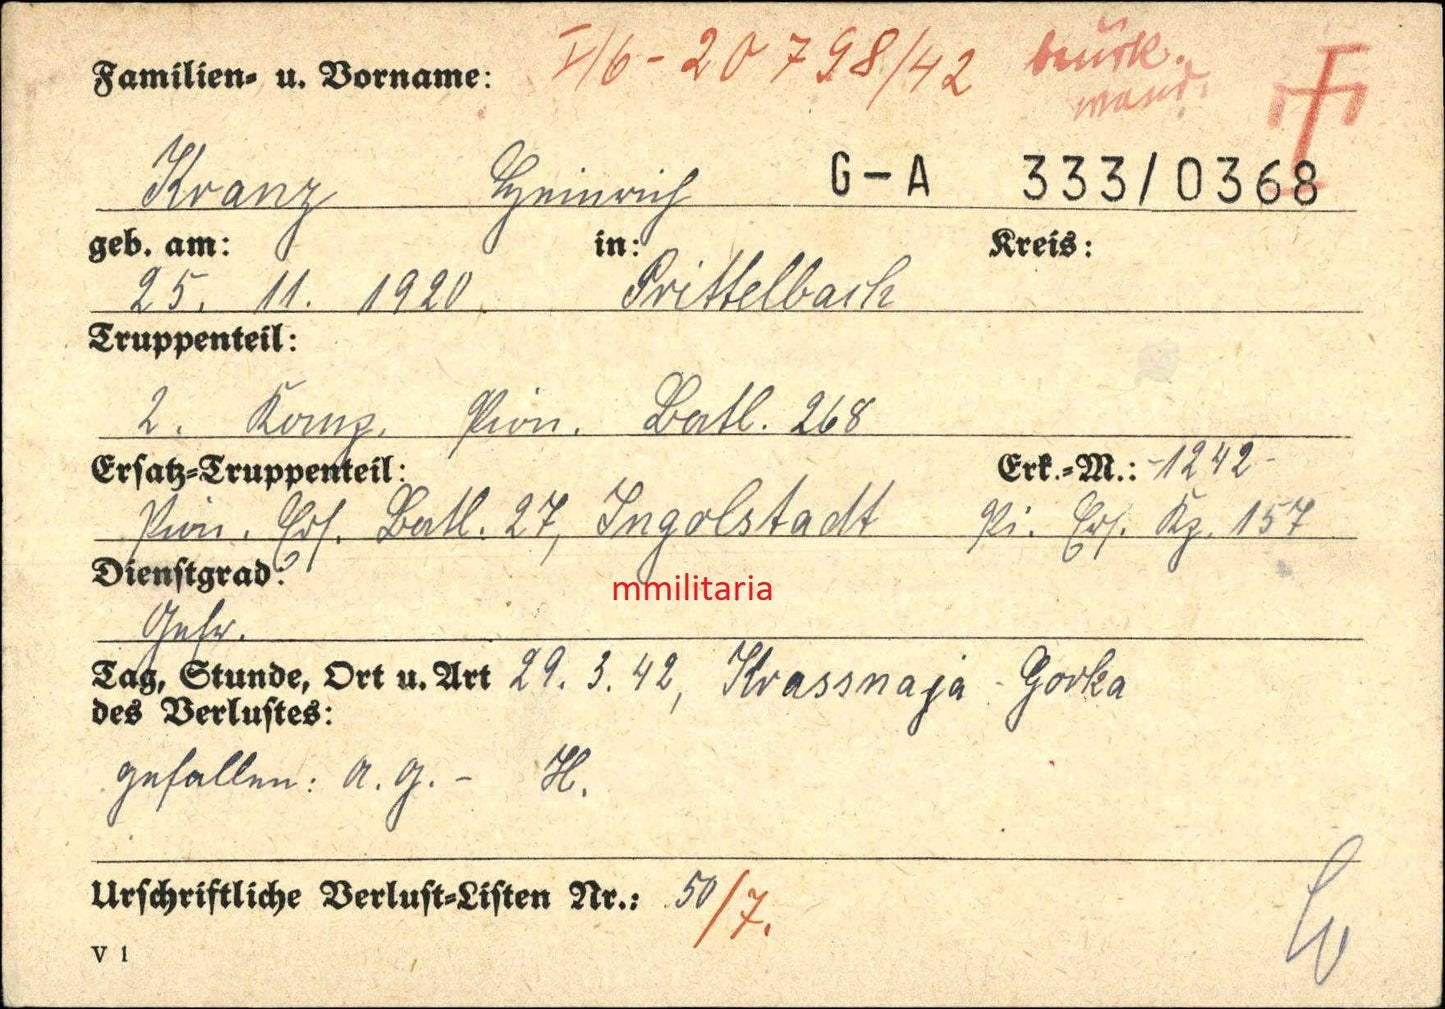 Familien- u. Vorname: I/6-20798/42 beurk.
Kranz Heinrich G-A 333/0368
geb. am: in: Kreis:
25. 11. 1920 Prittelbach
Truppenteil:
2. Komp. Pion. Batl. 268
Ersatz-Truppenteil: Erk.-M.: -1242-
Pion. Ers. Batl. 27, Ingolstadt Pi. Ers. Kp. 157
Dienstgrad:
mmilitaria
Gefr.
Tag, Stunde, Ort u. Art 29. 3. 42, Krassnaja-Gorka
des Verlustes:
gefallen: A. G. - H.
Urschriftliche Verlust-Listen Nr.: 50/7.
V 1